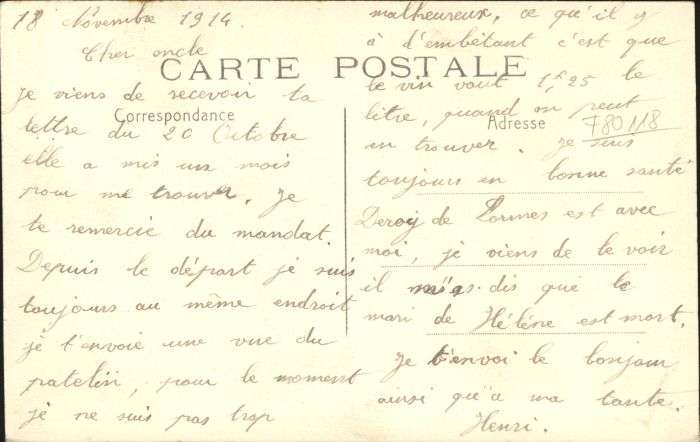 18 Novembre 1914.
Cher oncle
CARTE POSTALE
Correspondance
Je viens de recevoir ta
lettre du 20 Octobre
elle a mis un mois
pour me trouver. Je
te remercie du mandat.
Depuis le départ je suis
toujours au même endroit
je t'envoie une vue du
patelin, pour le moment
je ne suis pas trop
malheureux, ce qu'il y
à d'embêtant c'est que
le vin vaut 1f25 le
litre, quand on peut
en trouver. Je suis
Adresse
780118
toujours en bonne santé
Deroy de Lormes est avec
moi, je viens de le voir
il m'as dis que le
mari de Hélène est mort.
Je t'envoi le bonjour
ainsi qu'a ma tante.
Henri.